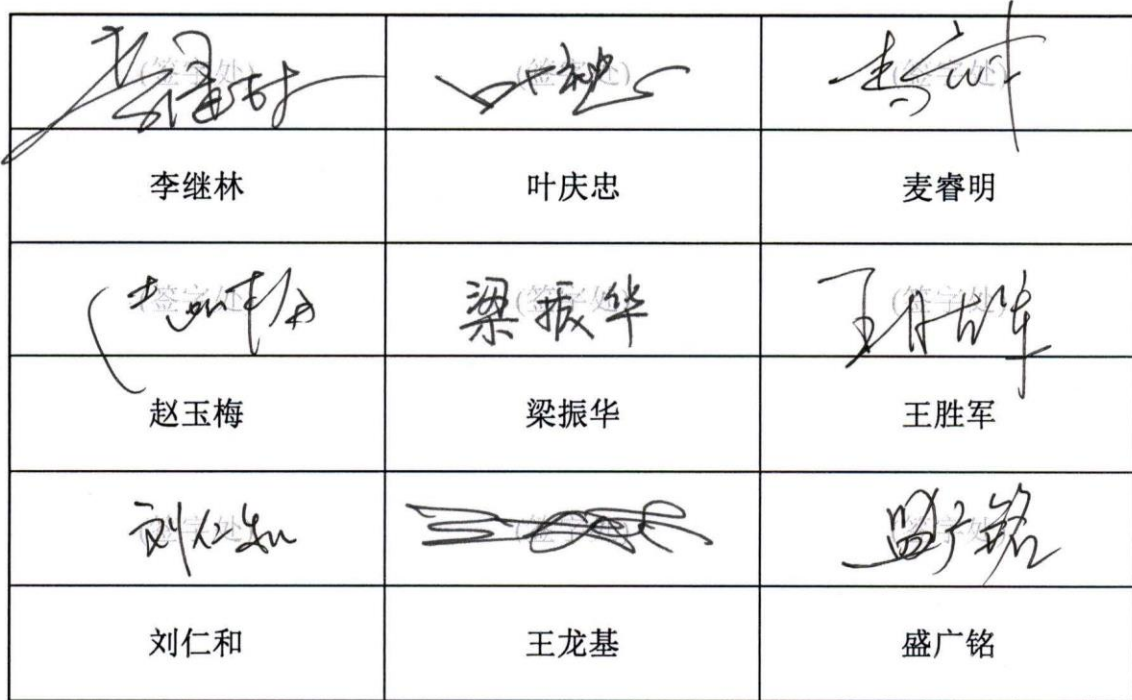 (签字处) (签字处) (签字处)
李继林 叶庆忠 麦睿明
(签字处) 梁振华 (签字处) 王胜军 (签字处)
赵玉梅 梁振华 王胜军
刘仁和 (签字处) (签字处) 盛广铭 (签字处)
刘仁和 王龙基 盛广铭